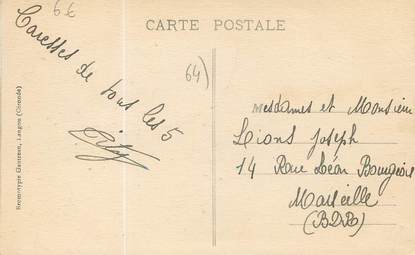 6€
CARTE POSTALE
64)
Caresses de tous les 5
Mesdames et Monsieur
Lions Joseph
14 Rue Léon Bourgeois
Marseille
(BDR)
Bromotypie Gautreau, Langon (Gironde)